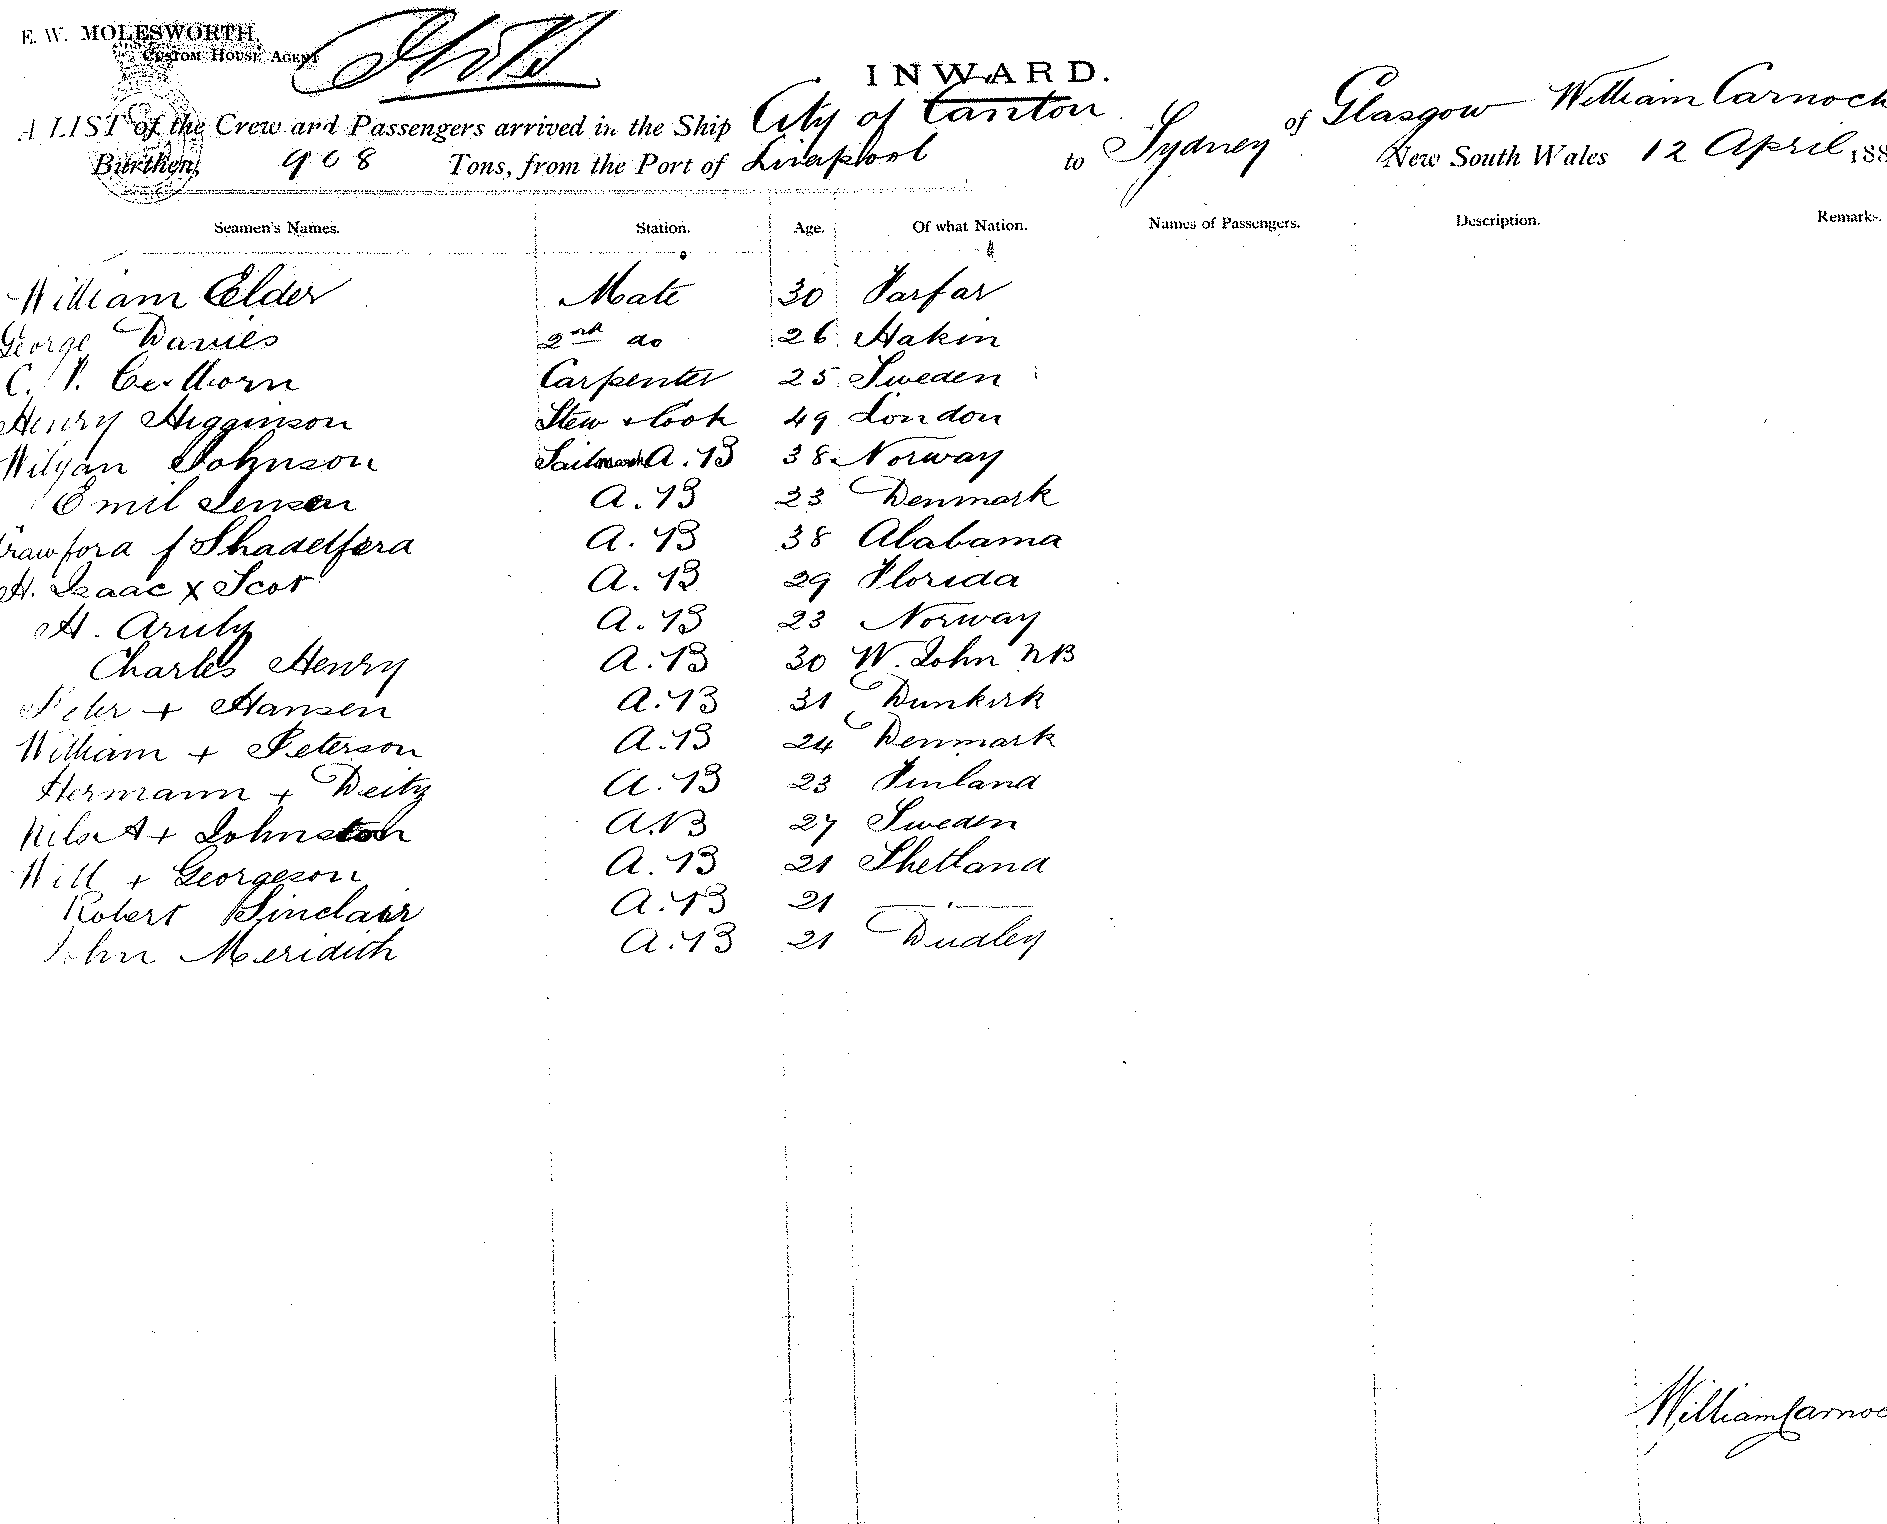 E. W. MOLESWORTH,
CUSTOM HOUSE AGENT
INWARD.
A LIST of the Crew and Passengers arrived in the Ship City of Canton of Glasgow William Carnoch
Burthen, 908 Tons, from the Port of Liverpool to Sydney New South Wales 12 April 188
Seamen's Names. Station. Age. Of what Nation. Names of Passengers. Description. Remarks.
William Elder Mate 30 Farfar
George Davies 2nd do 26 Hakin
C. Carpenter 25 Sweden
Henry Higginson Stew & Cook 49 London
Wilgan Johnson A.B 38 Norway
Emil Jensen A.B 23 Denmark
A.B 38 Alabama
H. Isaac x Scot A.B 29 Florida
H. A.B 23 Norway
Charles Henry A.B 30 W. John NB
Peter + Hansen A.B 31 Dunkirk
William + Peterson A.B 24 Denmark
Hermann + Deitz A.B 23 Finland
Nils A + Johnston A.B 27 Sweden
Will + Georgeson A.B 21 Shetland
Robert Sinclair A.B 21 —
John Meridith A.B 21 Dudley
William Carnoc